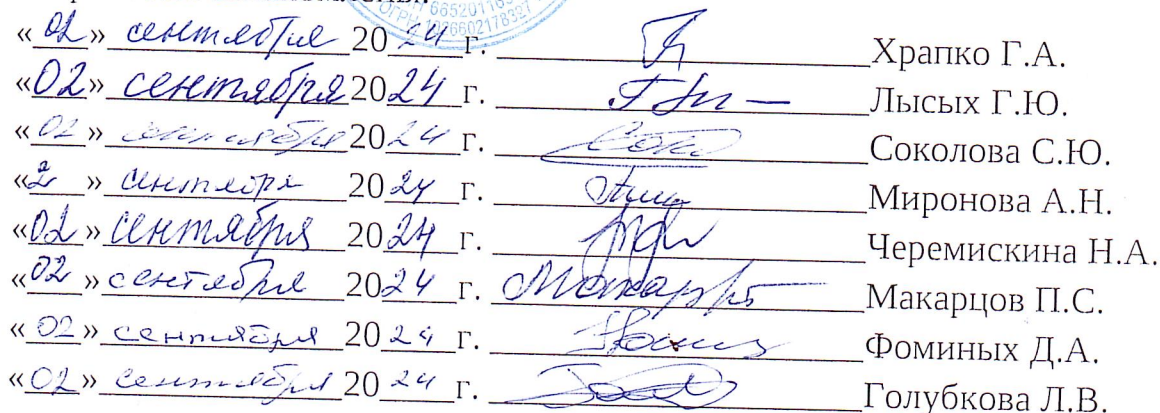 ОГРН 1026602178327
«02» сентября 2024 г. Храпко Г.А.
«02» сентября 2024 г. Лысых Г.Ю.
«02» сентября 2024 г. Соколова С.Ю.
«2» сентября 2024 г. Миронова А.Н.
«02» сентября 2024 г. Черемискина Н.А.
«02» сентября 2024 г. Макарцов П.С.
«02» сентября 2024 г. Фоминых Д.А.
«02» сентября 2024 г. Голубкова Л.В.